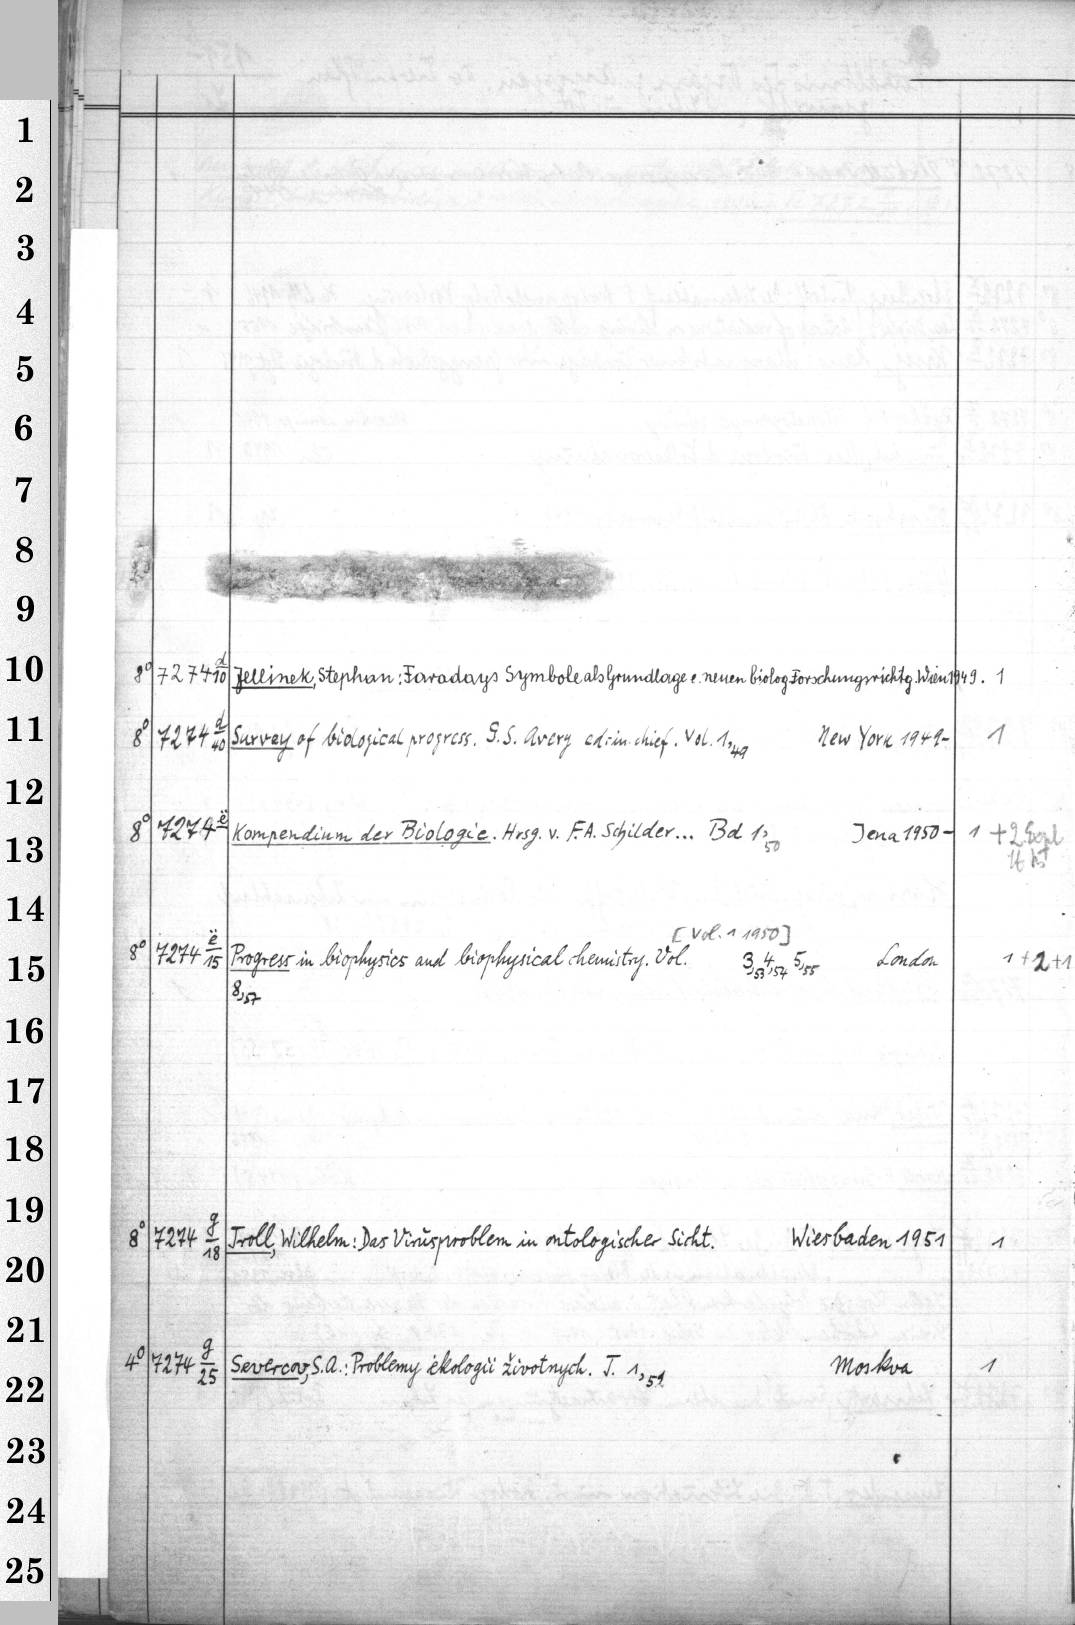 1
2
3
4
5
6
7
8
9
10
8° 7274 d/10 Jellinek, Stephan: Faradays Symbole als Grundlage e. neuen biolog Forschungsrichtg. Wien 1949. 1
11
8° 7274 d/40 Survey of biological progress. G.S. Avery ed:in.chief. Vol. 1,49 New York 1949- 1
12
8° 7274 ë Kompendium der Biologie. Hrsg. v. F.A. Schilder... Bd 1,50 Jena 1950- 1 +2 Expl
13
14
[Vol. 1 1950]
15
8° 7274 ë/15 Progress in biophysics and biophysical chemistry. Vol. 3,53 4,54 5,55 London 1+2+1
8,57
16
17
18
19
8° 7274 g/18 Troll, Wilhelm: Das Virusproblem in ontologischer Sicht. Wiesbaden 1951 1
20
21
4° 7274 g/25 Severcov, S.A.: Problemy ėkologii životnych. T. 1,51 Moskva 1
22
23
24
25